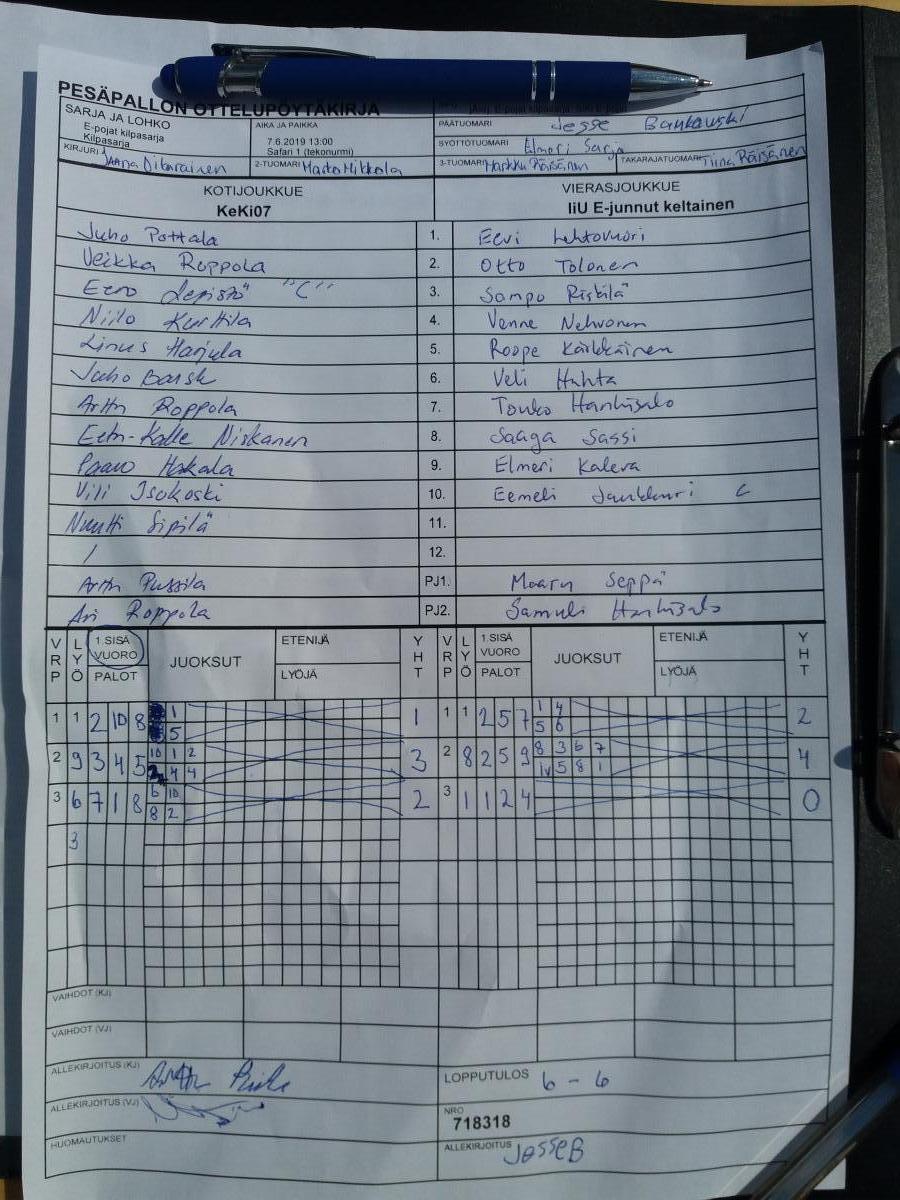 PESÄPALLON OTTELUPÖYTÄKIRJA
SARJA JA LOHKO
E-pojat kilpasarja
Kilpasarja
AIKA JA PAIKKA
7.6.2019 13:00
Safari 1 (tekonurmi)
PÄÄTUOMARI Jesse
SYÖTTÖTUOMARI Elmeri Sarja
KIRJURI
2-TUOMARI Marko Mikkola
3-TUOMARI Markku Räisänen
TAKARAJATUOMARI Tiina Räisänen
KOTIJOUKKUE
KeKi07
VIERASJOUKKUE
IiU E-junnut keltainen
Juho Pottala 1. Eevi Lehtovuori
Veikka Roppola 2. Otto Tolonen
Eero Lepistö "C" 3. Sampo Riskilä
Niilo Kurttila 4. Venne Nehvonen
Linus Harjula 5. Roope Kärkkäinen
Juho Barsk 6. Veli Huhta
Arttu Roppola 7. Touko Hanhisalo
Eetu-Kalle Niskanen 8. Saaga Sassi
Paavo Hakala 9. Elmeri Kaleva
Vili Isokoski 10. Eemeli C
Nuutti Sipilä 11.
/ 12.
Arttu Pussila PJ1. Maaru Seppä
Ari Roppola PJ2. Samuli Hanhisalo
VRP LYÖ 1.SISÄ VUORO PALOT JUOKSUT ETENIJÄ LYÖJÄ YHT VRP LYÖ 1.SISÄ VUORO PALOT JUOKSUT ETENIJÄ LYÖJÄ YHT
1 1 2 10 8 1 1 1 1 2 5 7 1 4 2
5 5 6
2 9 3 4 5 10 1 2 3 2 8 2 5 9 8 3 6 7 4
4 4 IV 5 8 1
3 6 7 1 8 6 10 2 3 1 1 2 4 0
8 2
3
VAIHDOT (KJ)
VAIHDOT (VJ)
ALLEKIRJOITUS (KJ)
LOPPUTULOS 6 - 6
ALLEKIRJOITUS (VJ)
NRO
718318
HUOMAUTUKSET
ALLEKIRJOITUS JesseB